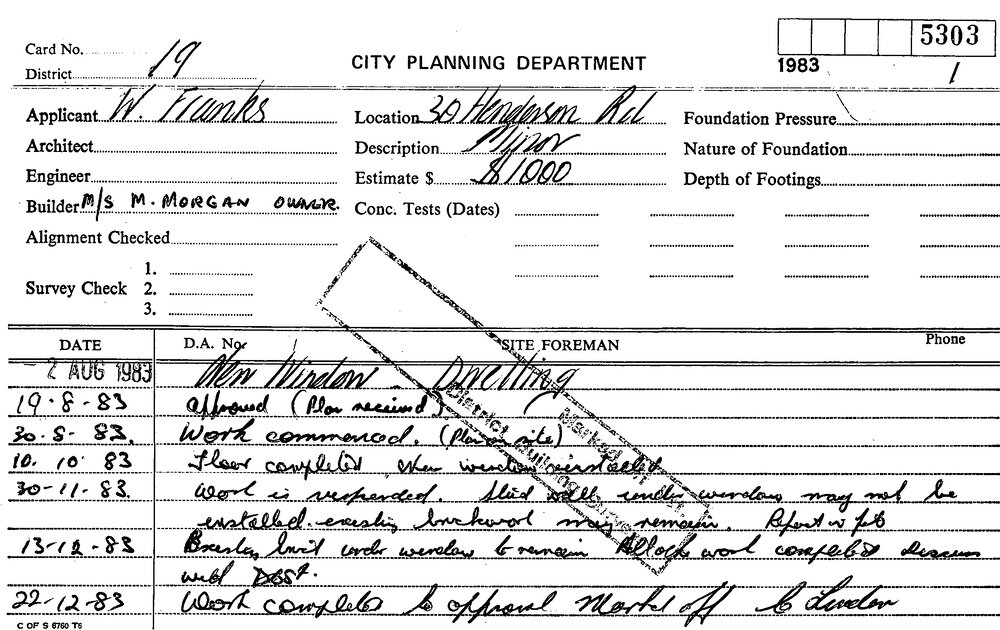 5303
Card No. 19
District
CITY PLANNING DEPARTMENT
1983 1
Applicant W. Franks
Location 30 Henderson Rd
Foundation Pressure
Architect
Description Minor
Nature of Foundation
Engineer
Estimate $ $1000
Depth of Footings
Builder M/S M. MORGAN OWNER.
Conc. Tests (Dates)
Alignment Checked
1.
Survey Check 2.
3.
DATE D.A. No. SITE FOREMAN Phone
- 2 AUG 1983 New Window. Dwelling
19.8-83 approved (Plan received)
30.8-83. Work commenced. (Plan on site)
10.10 83 Floor completed when window installed
30-11-83. Work is suspended. Stud wall under window may not be
installed. existing brickwork may remain. Report in feb
13-12-83 Existing brick under window to remain All other work completed discuss
with
22-12-83 Work completed to approval Marked off
Marked on Dist.
District Building Surveyor
C OF S 6760 T6